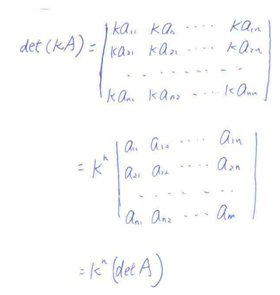 det(kA) = | ka₁₁ ka₁₂ ···· ka₁ₙ |
| ka₂₁ ka₂₁ ···· ka₂ₙ |
| ·· ····· |
| kaₙ₁ kaₙ₂ ···· kaₙₙ |
= kⁿ | a₁₁ a₁₂ ···· a₁ₙ |
| a₂₁ a₂₂ ···· a₂ₙ |
| ········ |
| aₙ₁ aₙ₂ ··· aₙₙ |
= kⁿ (det A)